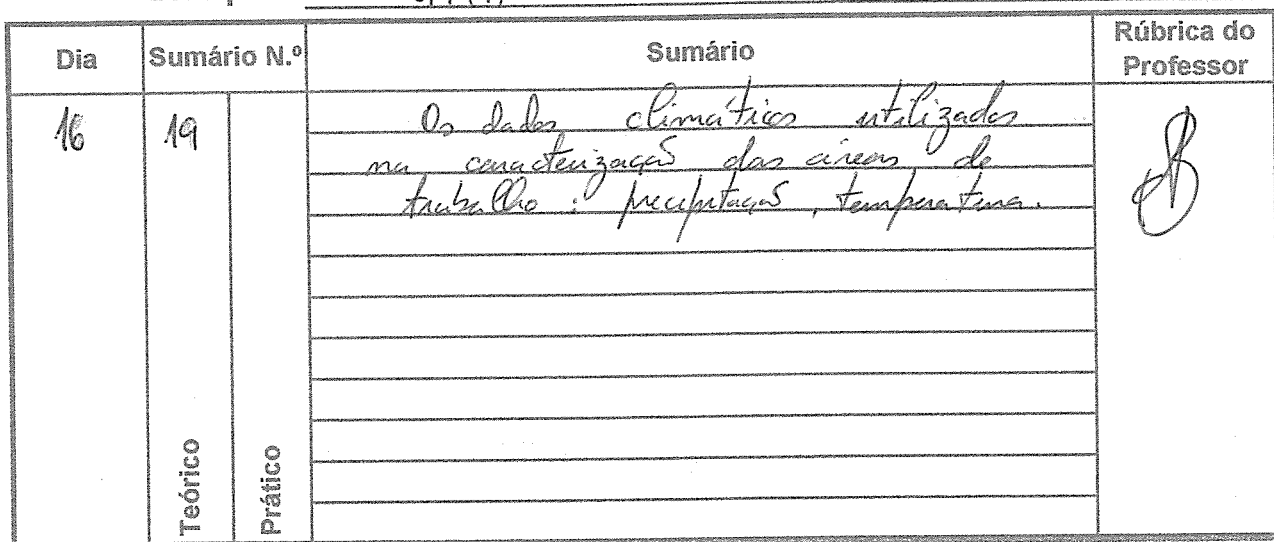 Dia Sumário N.º Sumário Rúbrica do Professor
16 19 Os dados climáticos utilizados
na caracterização das áreas de
trabalho : precipitação, temperatura.
Teórico Prático